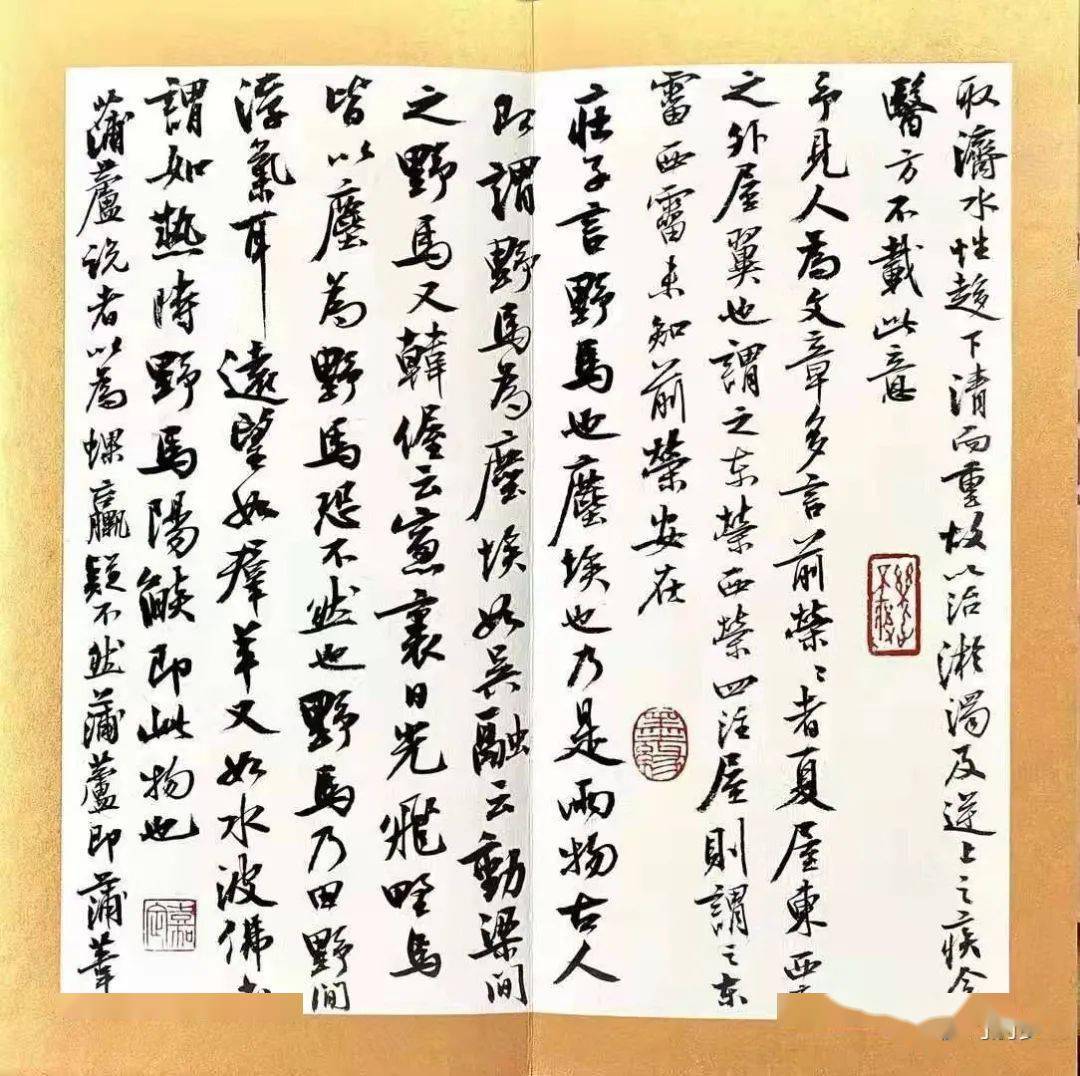 取濟水性趍下清而重故以治淤濁及逆上之疾今
醫方不載此意
予見人為文章多言前榮〻者夏屋東西
之外屋翼也謂之東榮西榮四注屋則謂之東
霤西霤未知前榮安在
莊子言野馬也塵埃也乃是兩物古人
即謂野馬為塵埃如吳融云動梁間
之野馬又韓偓云窻裏日光飛野馬
皆以塵為野馬恐不然也野馬乃田野間
浮氣耳遠望如羣羊又如水波佛
謂如熱時野馬陽燄即此物也
蒲蘆說者以為蜾蠃疑不然蒲蘆即蒲葦